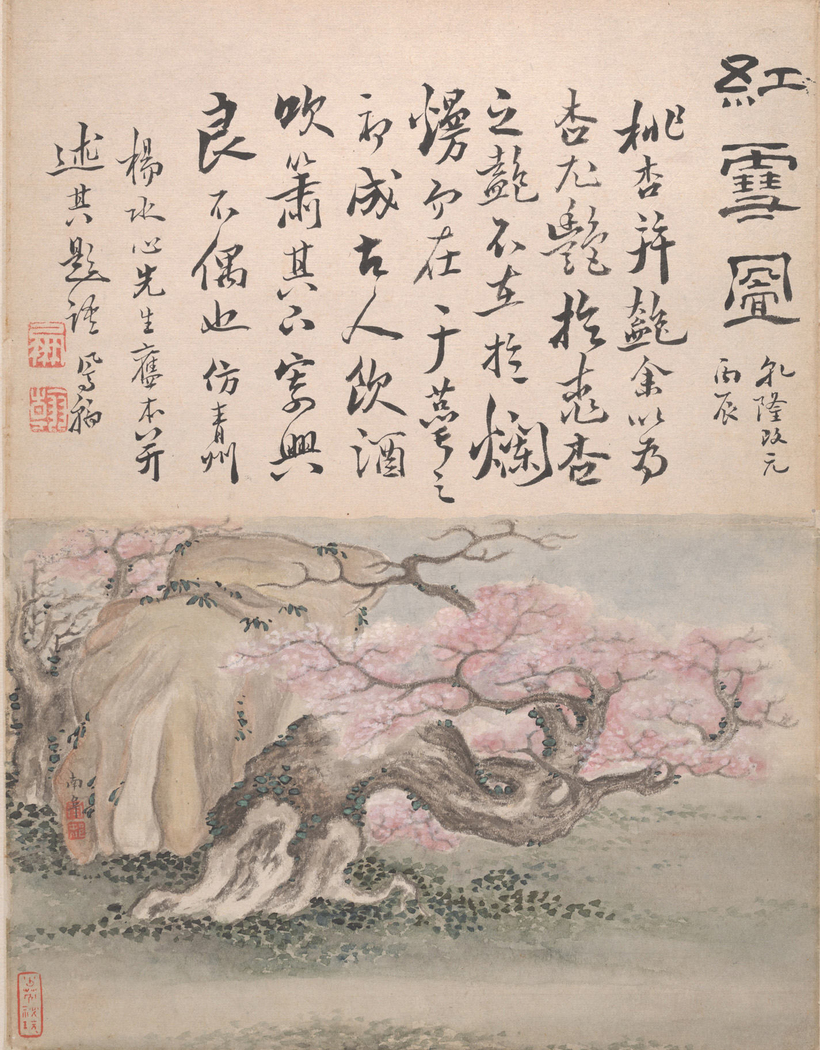 紅雪圖
乾隆改元
丙辰
桃杏並艷余以為
杏尤艷於桃杏
之艷不在於爛
熳而在于萼之
初成古人飲酒
吹簫其下寄興
良不偶也仿青州
楊水心先生舊本并
述其題語 鳳翰
南阜